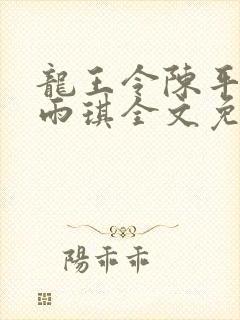 龍王令陳平
雨琪全文免
陽乖乖